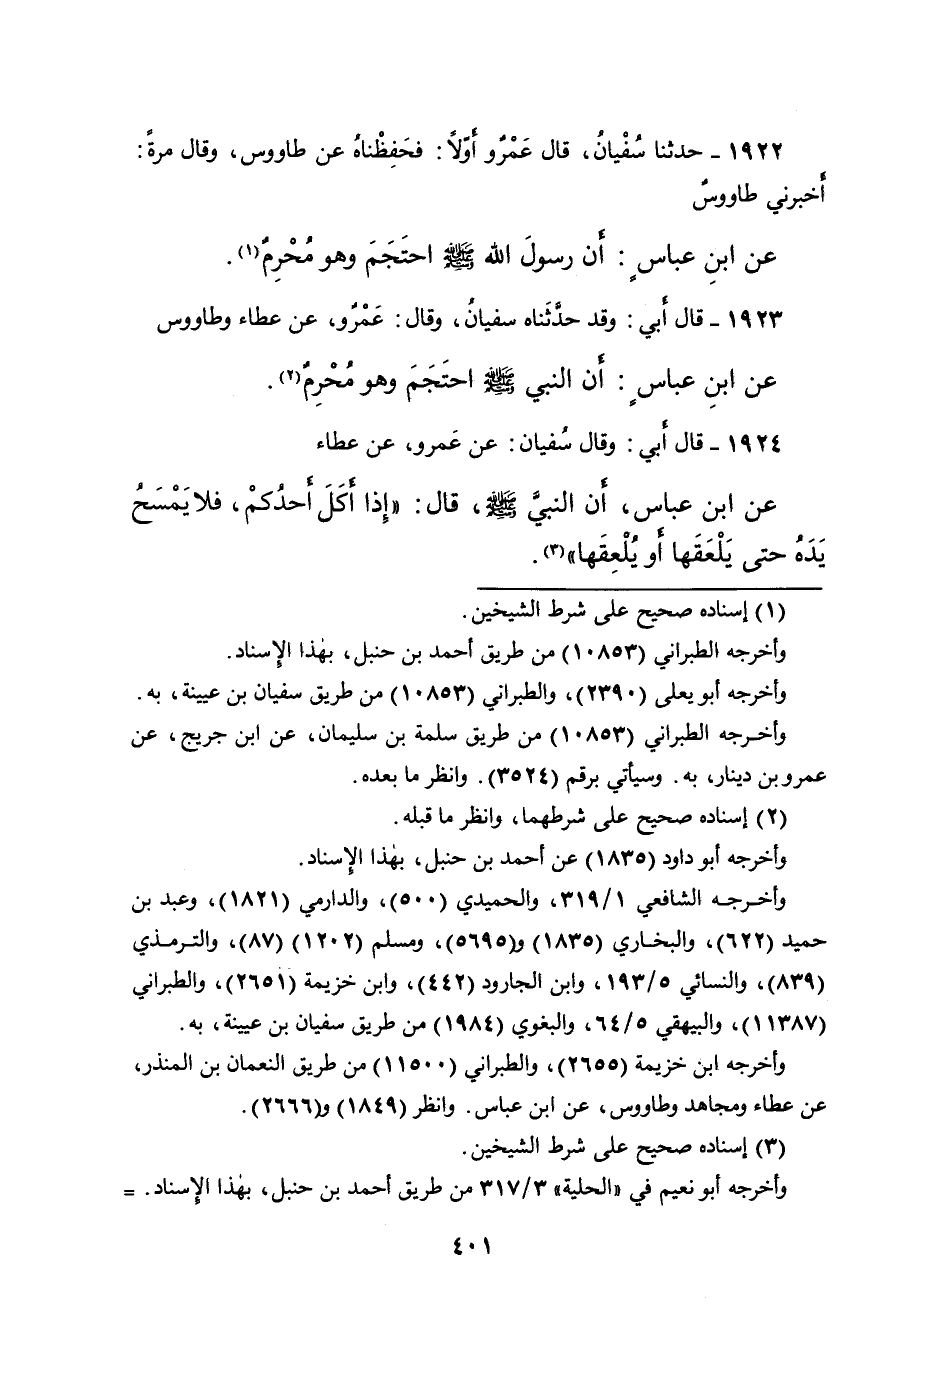 ١٩٢٢ ـ حدثنا سُفْيانُ، قال عَمْرٌو أَوَّلاً: فحَفِظْناهُ عن طاووس، وقال مرةً:
أَخبرني طاووسٌ
عن ابنِ عباسٍ: أَن رسولَ الله ﷺ احتَجَمَ وهو مُحْرِمٌ(١).
١٩٢٣ ـ قال أَبي: وقد حدَّثَناه سفيانُ، وقال: عَمْرٌو، عن عطاء وطاووس
عن ابنِ عباسٍ: أَن النبي ﷺ احتَجَمَ وهو مُحْرِمٌ(٢).
١٩٢٤ ـ قال أَبي: وقال سُفيان: عن عَمرو، عن عطاء
عن ابن عباس، أَن النبيَّ ﷺ، قال: «إِذا أَكَلَ أَحدُكمْ، فلا يَمْسَحُ
يَدَهُ حتى يَلْعَقَها أَو يُلْعِقَها»(٣).
(١) إسناده صحيح على شرط الشيخين.
وأخرجه الطبراني (١٠٨٥٣) من طريق أحمد بن حنبل، بهٰذا الإسناد.
وأخرجه أبو يعلى (٢٣٩٠)، والطبراني (١٠٨٥٣) من طريق سفيان بن عيينة، به.
وأخرجه الطبراني (١٠٨٥٣) من طريق سلمة بن سليمان، عن ابن جريج، عن
عمرو بن دينار، به. وسيأتي برقم (٣٥٢٤). وانظر ما بعده.
(٢) إسناده صحيح على شرطهما، وانظر ما قبله.
وأخرجه أبو داود (١٨٣٥) عن أحمد بن حنبل، بهٰذا الإسناد.
وأخرجه الشافعي ٣١٩/١، والحميدي (٥٠٠)، والدارمي (١٨٢١)، وعبد بن
حميد (٦٢٢)، والبخاري (١٨٣٥) و(٥٦٩٥)، ومسلم (١٢٠٢) (٨٧)، والترمذي
(٨٣٩)، والنسائي ١٩٣/٥، وابن الجارود (٤٤٢)، وابن خزيمة (٢٦٥١)، والطبراني
(١١٣٨٧)، والبيهقي ٦٤/٥، والبغوي (١٩٨٤) من طريق سفيان بن عيينة، به.
وأخرجه ابن خزيمة (٢٦٥٥)، والطبراني (١١٥٠٠) من طريق النعمان بن المنذر،
عن عطاء ومجاهد وطاووس، عن ابن عباس. وانظر (١٨٤٩) و(٢٦٦٦).
(٣) إسناده صحيح على شرط الشيخين.
وأخرجه أبو نعيم في «الحلية» ٣١٧/٣ من طريق أحمد بن حنبل، بهٰذا الإسناد. =
٤٠١